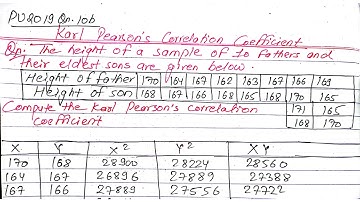 PU 2019 Qn. 10b
Karl Pearson's Correlation Coefficient
Qn. The height of a sample of 10 fathers and
their eldest sons are given below.
Height of father 170 164 167 162 163 167 166 169
Height of son 168 167 166 168 165 168 170 165
Compute the Karl Pearson's correlation 171 165
coefficient 168 170
X Y X² Y² XY
170 168 28900 28224 28560
164 167 26896 27889 27388
167 166 27889 27556 27722